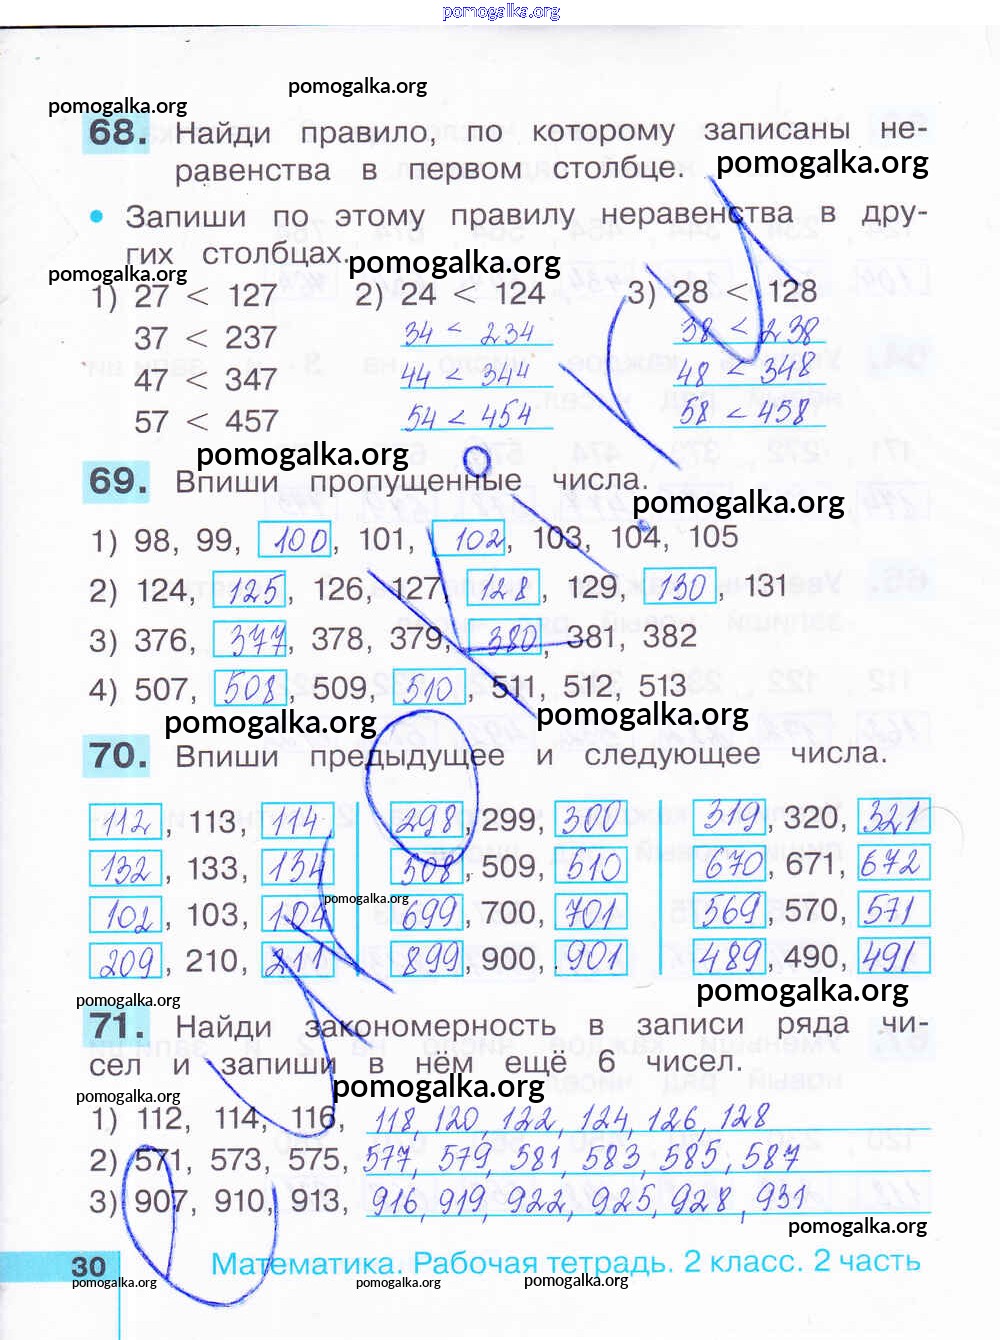 pomogalka.org
pomogalka.org
pomogalka.org
68. Найди правило, по которому записаны не-
равенства в первом столбце.
pomogalka.org
• Запиши по этому правилу неравенства в дру-
гих столбцах.
pomogalka.org
pomogalka.org
1) 27 < 127 2) 24 < 124 3) 28 < 128
37 < 237 34 < 234 38 < 238
47 < 347 44 < 344 48 < 348
57 < 457 54 < 454 58 < 458
pomogalka.org
69. Впиши пропущенные числа.
pomogalka.org
1) 98, 99, 100, 101, 102, 103, 104, 105
2) 124, 125, 126, 127, 128, 129, 130, 131
3) 376, 377, 378, 379, 380, 381, 382
4) 507, 508, 509, 510, 511, 512, 513
pomogalka.org pomogalka.org
70. Впиши предыдущее и следующее числа.
112, 113, 114 298, 299, 300 319, 320, 321
132, 133, 134 508, 509, 510 670, 671, 672
pomogalka.org
102, 103, 104 699, 700, 701 569, 570, 571
209, 210, 211 899, 900, 901 489, 490, 491
pomogalka.org pomogalka.org
71. Найди закономерность в записи ряда чи-
сел и запиши в нём ещё 6 чисел.
pomogalka.org pomogalka.org
1) 112, 114, 116, 118, 120, 122, 124, 126, 128
2) 571, 573, 575, 577, 579, 581, 583, 585, 587
3) 907, 910, 913, 916, 919, 922, 925, 928, 931
pomogalka.org
30 Математика. Рабочая тетрадь. 2 класс. 2 часть
pomogalka.org pomogalka.org pomogalka.org